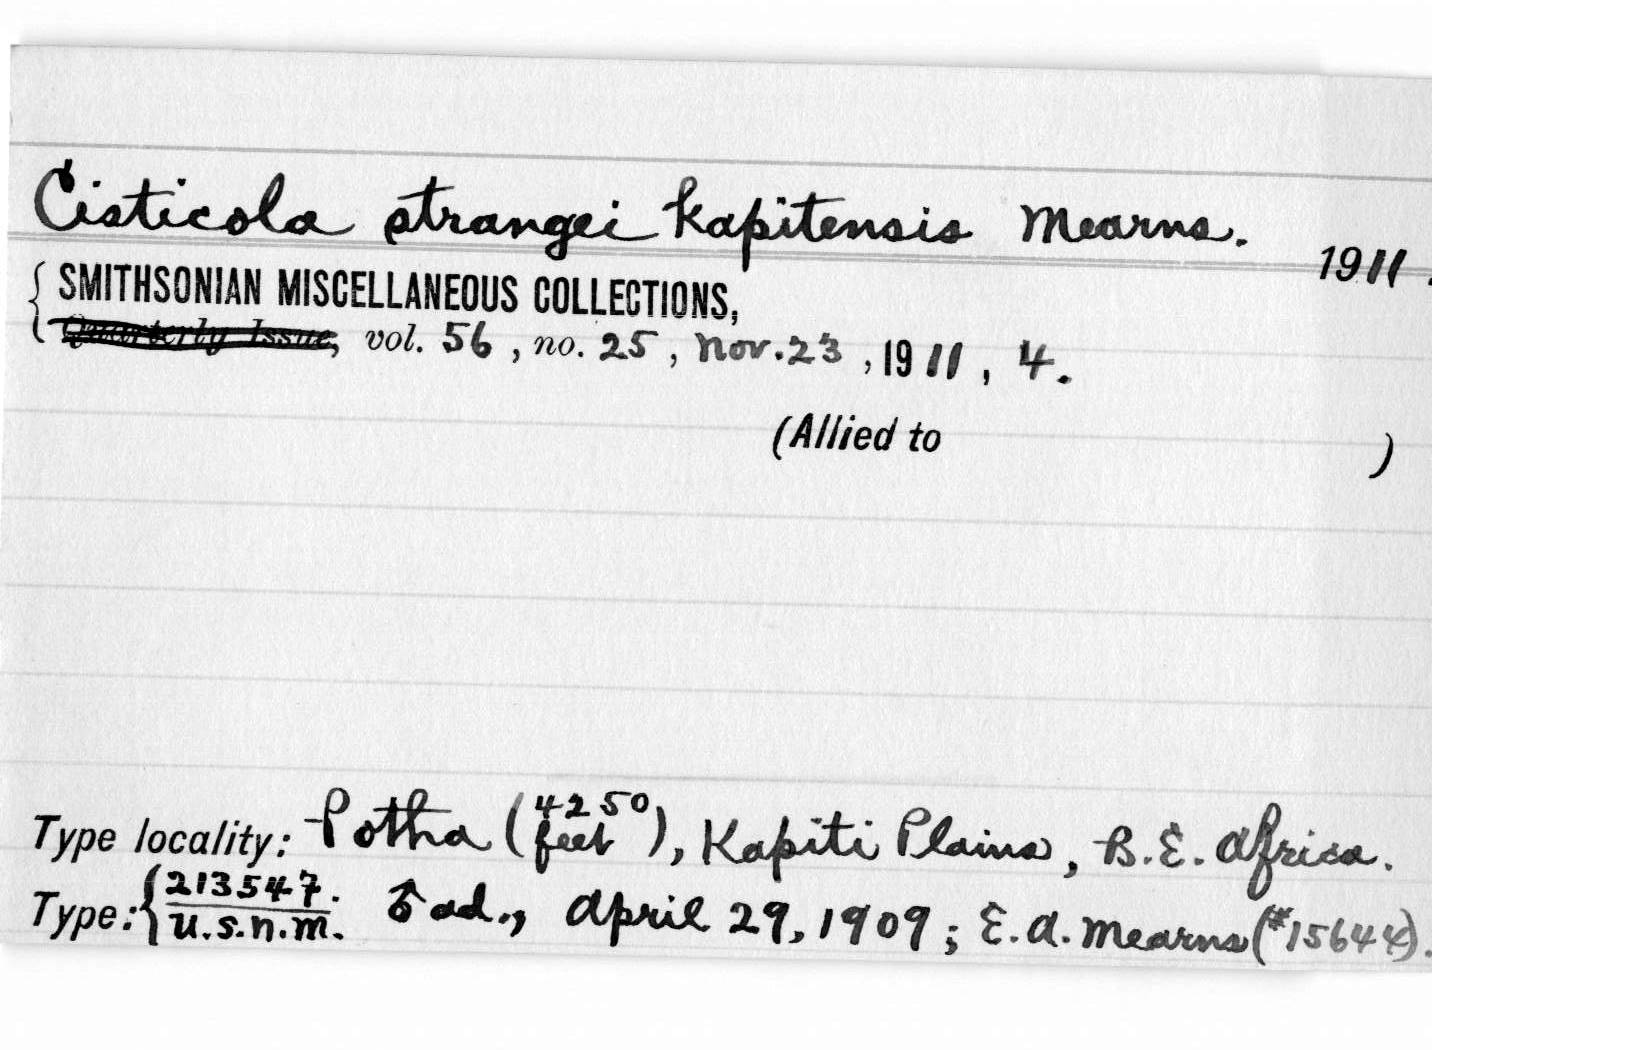 Cisticola strangei kapitensis Mearns.
1911.
SMITHSONIAN MISCELLANEOUS COLLECTIONS,
Quarterly Issue, vol. 56, no. 25, Nov. 23, 1911, 4.
(Allied to )
Type locality: Potha (4250 feet), Kapiti Plains, B.E. Africa.
Type: {213547. U.S.N.M. ♂ ad., April 29, 1909; E.A. Mearns (#15644).